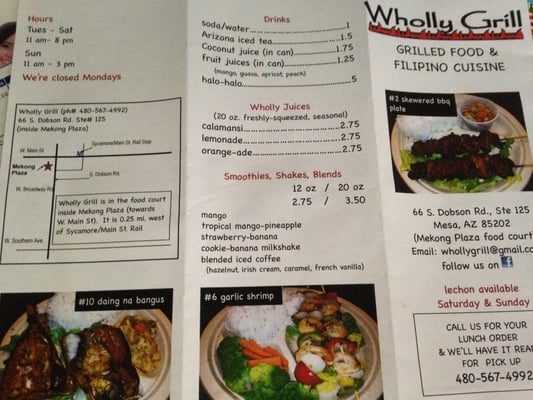 Hours
Tues - Sat
11 am- 8 pm
Sun
11 am - 3 pm
We're closed Mondays
Wholly Grill (ph# 480-567-4992)
66 S. Dobson Rd. Ste# 125
(inside Mekong Plaza)
Sycamore/Main St. Rail Stop
W. Main St.
M
Mekong
Plaza
S. Dobson Rd.
W. Broadway Rd
Wholly Grill is in the food court
inside Mekong Plaza (towards
W. Main St). It is 0.25 mi. west
of Sycamore/Main St. Rail
W. Southern Ave
#10 daing na bangus
Drinks
soda/water 1
Arizona iced tea 1.5
Coconut juice (in can) 1.75
fruit juices (in can) 1.25
(mango, guava, apricot, peach)
halo-halo 5
Wholly Juices
(20 oz. freshly-squeezed, seasonal)
calamansi 2.75
lemonade 2.75
orange-ade 2.75
Smoothies, Shakes, Blends
12 oz / 20 oz
2.75 / 3.50
mango
tropical mango-pineapple
strawberry-banana
cookie-banana milkshake
blended iced coffee
(hazelnut, irish cream, caramel, french vanilla)
#6 garlic shrimp
Wholly Grill
GRILLED FOOD &
FILIPINO CUISINE
#2 skewered bbq
plate
66 S. Dobson Rd., Ste 125
Mesa, AZ 85202
(Mekong Plaza food court)
Email: whollygrill@gmail.co
follow us on f
lechon available
Saturday & Sunday
CALL US FOR YOUR
LUNCH ORDER
& WE'LL HAVE IT REA
FOR PICK UP
480-567-4992